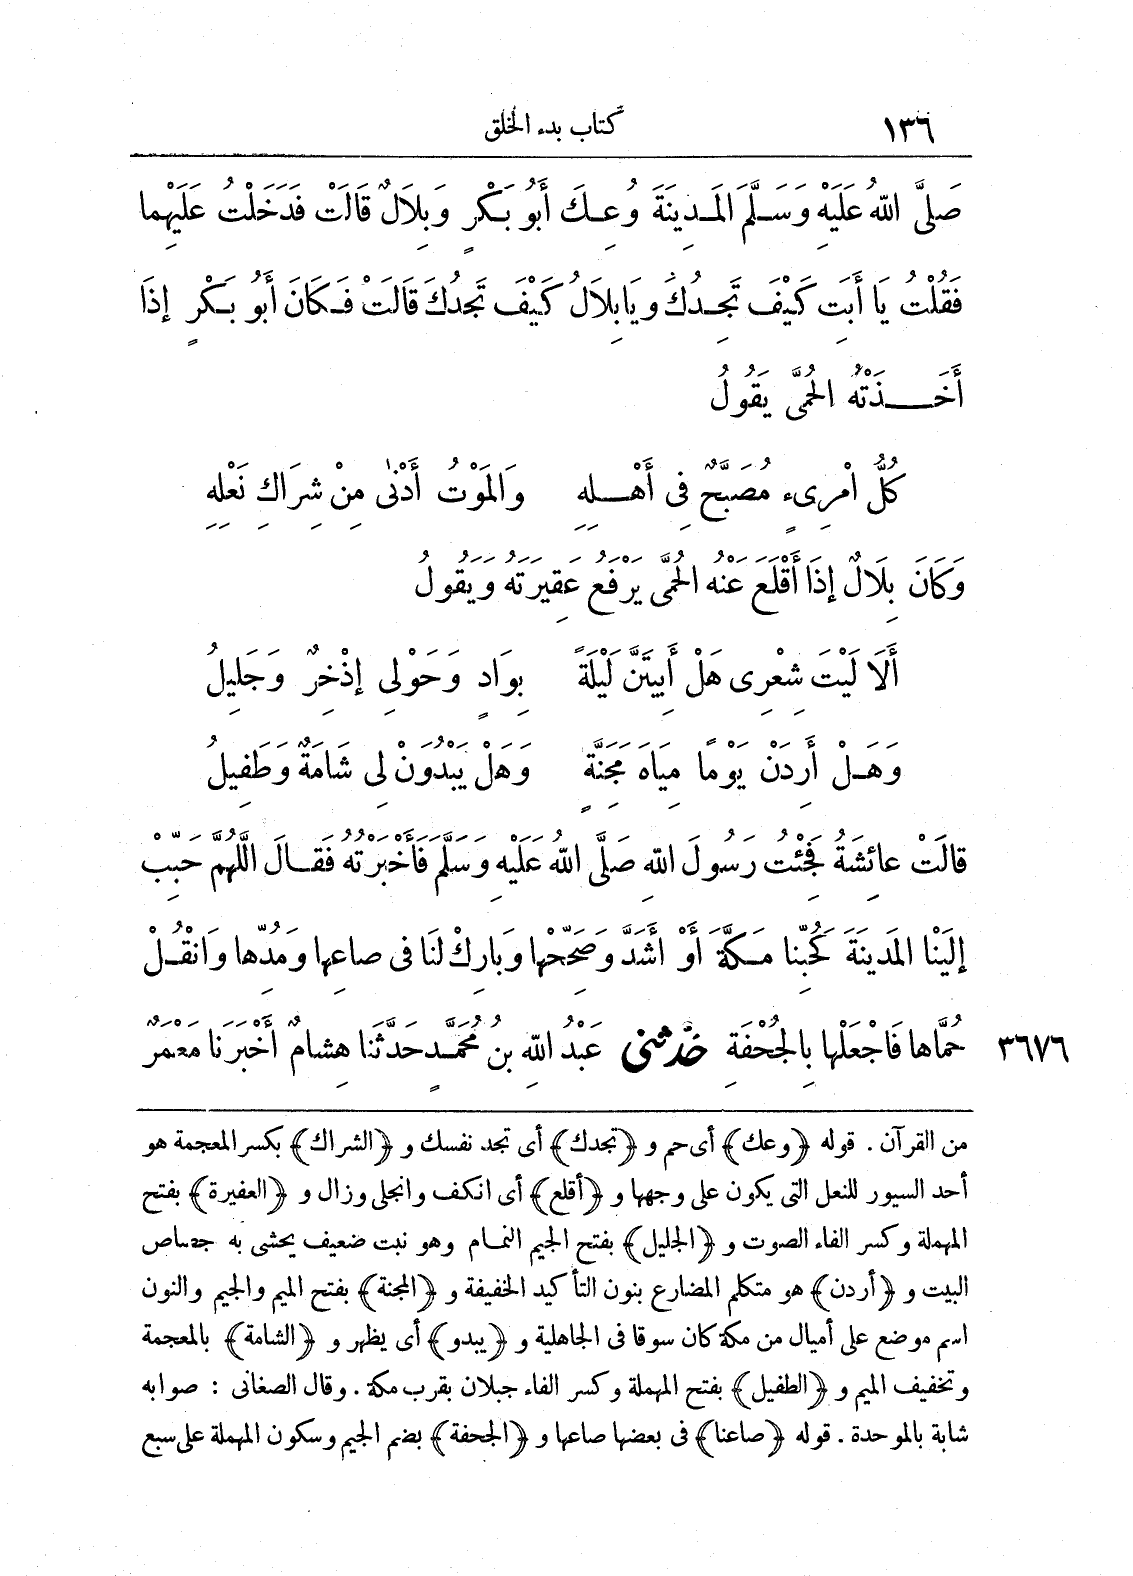 ١٣٦
كتاب بدء الخلق
صَلَّى اللهُ عَلَيْهِ وَسَلَّمَ المَدِينَةَ وُعِكَ أَبُو بَكْرٍ وَبِلَالٌ قَالَتْ فَدَخَلْتُ عَلَيْهِما
فَقُلْتُ يَا أَبَتِ كَيْفَ تَجِدُكَ وَيَا بِلَالُ كَيْفَ تَجِدُكَ قَالَتْ فَكَانَ أَبُو بَكْرٍ إِذَا
أَخَذَتْهُ الحُمَّى يَقُولُ
كُلُّ امْرِىءٍ مُصَبَّحٌ فِى أَهْلِهِ وَالمَوْتُ أَدْنَى مِنْ شِرَاكِ نَعْلِهِ
وَكَانَ بِلَالٌ إِذَا أَقْلَعَ عَنْهُ الحُمَّى يَرْفَعُ عَقِيرَتَهُ وَيَقُولُ
أَلَا لَيْتَ شِعْرِى هَلْ أَبِيتَنَّ لَيْلَةً بِوَادٍ وَحَوْلِى إِذْخِرٌ وَجَلِيلُ
وَهَلْ أَرِدَنْ يَوْمًا مِيَاهَ مَجَنَّةٍ وَهَلْ يَبْدُوَنْ لِى شَامَةٌ وَطَفِيلُ
قالَتْ عائِشَةُ فَجِئْتُ رَسُولَ اللهِ صَلَّى اللهُ عَلَيْهِ وَسَلَّمَ فَأَخْبَرْتُهُ فَقَالَ اللَّهُمَّ حَبِّبْ
إِلَيْنَا المَدِينَةَ كَحُبِّنا مَكَّةَ أَوْ أَشَدَّ وَصَحِّحْها وَبَارِكْ لَنَا فى صاعِها وَمُدِّها وَانْقُلْ
حُمَّاها فَاجْعَلْها بِالجُحْفَةِ حَدَّثَنِى عَبْدُ اللهِ بنُ مُحَمَّدٍ حَدَّثَنَا هِشامٌ أَخْبَرَنَا مَعْمَرٌ
٣٦٧٦
من القرآن . قوله ﴿وعك﴾ أى حم و ﴿تجدك﴾ أى تجد نفسك و ﴿الشراك﴾ بكسر المعجمة هو
أحد السيور للنعل التى يكون على وجهها و ﴿أقلع﴾ أى انكف وانجلى وزال و ﴿العفيرة﴾ بفتح
المهملة وكسر الفاء الصوت و ﴿الجليل﴾ بفتح الجيم الثمام وهو نبت ضعيف يحشى به خصاص
البيت و ﴿أردن﴾ هو متكلم المضارع بنون التأكيد الخفيفة و ﴿المجنة﴾ بفتح الميم والجيم والنون
اسم موضع على أميال من مكة كان سوقا فى الجاهلية و ﴿يبدو﴾ أى يظهر و ﴿الشامة﴾ بالمعجمة
وتخفيف الميم و ﴿الطفيل﴾ بفتح المهملة وكسر الفاء جبلان بقرب مكة . وقال الصغانى : صوابه
شابة بالموحدة . قوله ﴿صاعنا﴾ فى بعضها صاعها و ﴿الجحفة﴾ بضم الجيم وسكون المهملة على سبع